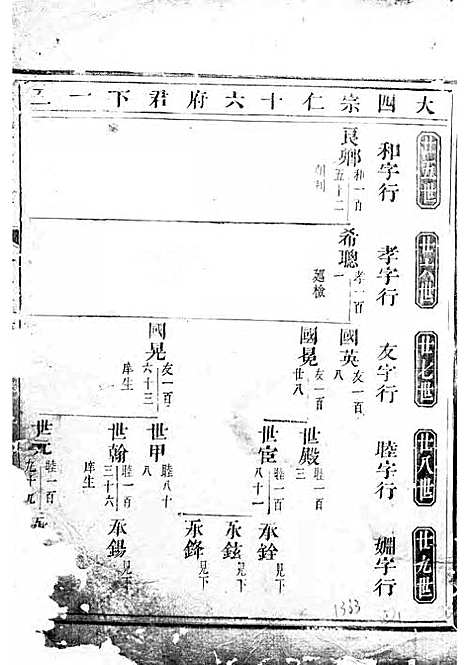 大四宗仁十六府君下一二
廿五世
和字行
良卿
和一百五十二
廿六世
孝字行
希聰
孝一百一
巡檢
廿七世
友字行
國英
友一百八
國冕
友一百廿八
國晃
友一百六十三
庠生
廿八世
睦字行
世殿
睦一百三
世宦
睦一百八十一
世甲
睦八十八
世翰
睦一百三十六
庠生
世元
睦一百九十九
廿九世
婣字行
永銓
見下
永鉉
見下
永鋒
見下
永錫
見下
1333